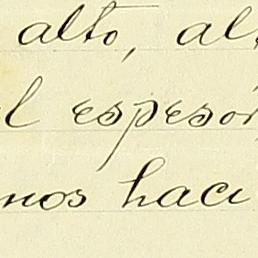 alto, al
el espesor
nos haci